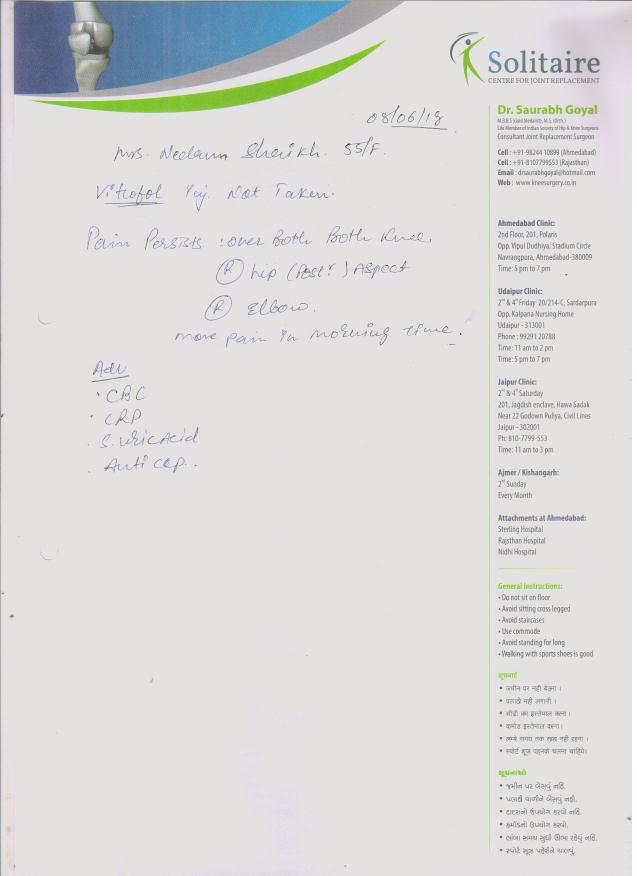 Solitaire
CENTRE FOR JOINT REPLACEMENT
Dr. Saurabh Goyal
M.B.B.S (Gold Medalist), M.S. (Orth.)
Life Member of Indian Society of Hip & Knee Surgeons
Consultant Joint Replacement Surgeon
Cell : +91-98244 10899 (Ahmedabad)
Cell : +91-8107799553 (Rajasthan)
Email : drsaurabhgoyal@hotmail.com
Web : www.kneesurgery.co.in
08/06/18
Mrs. Neelam Shaikh. 55/F.
Vitrofol Inj. Not Taken.
Pain Persists : over Both Both Knee.
(R) hip (Post.) Aspect
(R) Elbow.
more pain in morning time.
Adv
• CBC
• CRP
. S. Uric Acid
. Anti ccp.
Ahmedabad Clinic:
2nd Floor, 201, Polaris
Opp. Vipul Dudhiya, Stadium Circle
Navrangpura, Ahmedabad-380009
Time: 5 pm to 7 pm
Udaipur Clinic:
2nd & 4th Friday 20/214-C, Sardarpura
Opp. Kalpana Nursing Home
Udaipur - 313001
Phone : 99291 20788
Time: 11 am to 2 pm
Time: 5 pm to 7 pm
Jaipur Clinic:
2nd & 4th Saturday
201, Jagdish enclave, Hawa Sadak
Near 22 Godown Puliya, Civil Lines
Jaipur - 302001
Ph: 810-7799-553
Time: 11 am to 3 pm
Ajmer / Kishangarh:
2nd Sunday
Every Month
Attachments at Ahmedabad:
Sterling Hospital
Rajsthan Hospital
Nidhi Hospital
General Instructions:
• Do not sit on floor
• Avoid sitting cross legged
• Avoid staircases
• Use commode
• Avoid standing for long
• Walking with sports shoes is good
सूचनाएं
• जमीन पर नही बेठना ।
• पलाठी नही लगानी ।
• सीढी का इस्तेमाल करना ।
• कमोड इस्तेमाल करना ।
• लम्बे समय तक खडा नही रहना ।
• स्पोर्ट शूज पहनके चलना चाहिये।
સૂચનાઓ
• જમીન પર બેસવું નહિં.
• પલાઠી વાળીને બેસવું નહી.
• દાદરાનો ઉપયોગ કરવો નહિં.
• કમોડનો ઉપયોગ કરવો.
• લાંબા સમય સુધી ઊભા રહેવું નહિં.
• સ્પોર્ટ સૂઝ પહેરીને ચાલવું.